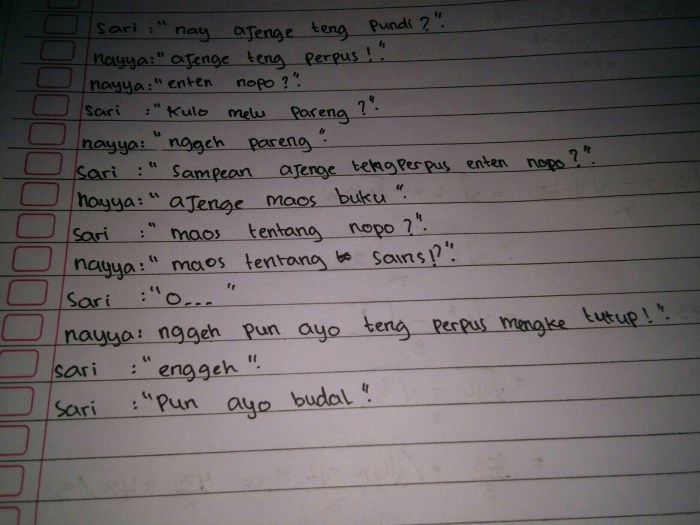 sari : "nay ajenge teng pundi?".
nayya: "ajenge teng perpus!".
nayya: "enten nopo?".
sari : "kulo melu pareng?".
nayya: "nggeh pareng".
sari : "sampean ajenge teng perpus enten nopo?".
nayya: "ajenge maos buku".
sari : "maos tentang nopo?".
nayya: "maos tentang sains!?".
sari : "o... "
nayya: nggeh pun ayo teng perpus mengke tutup!".
sari : "enggeh".
sari : "pun ayo budal".